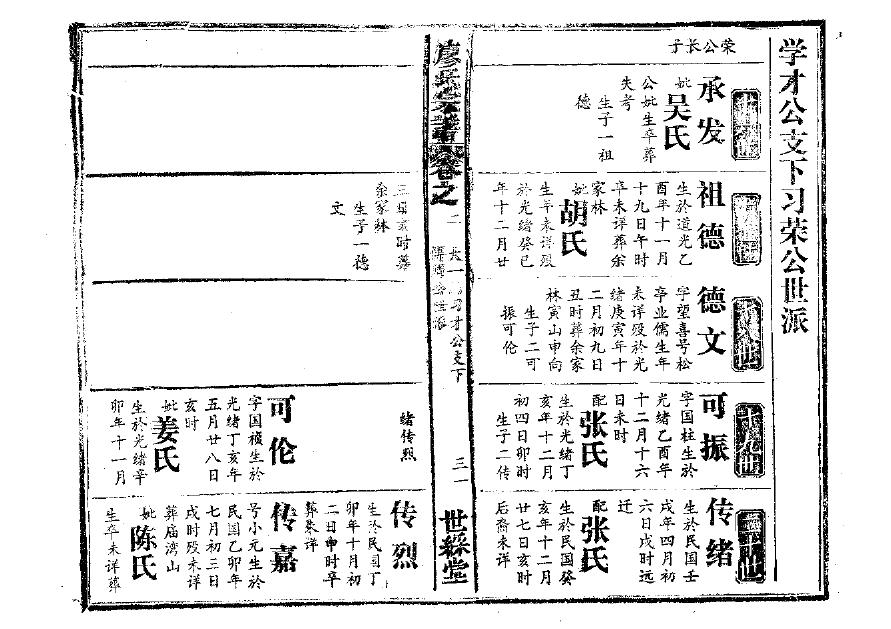 学才公支下习荣公世派
荣公长子
承发
妣吴氏
公妣生卒葬
失考
生子一祖
德
祖德
生於道光乙
酉年十一月
十九日午时
卒未详葬余
家林
妣胡氏
生年未详殁
於光绪癸巳
年十二月廿
三日亥时葬
余家林
生子一德
文
德文
字望喜号松
亭业儒生年
未详殁於光
绪庚寅年十
二月初九日
丑时葬余家
林寅山申向
生子二可
振可伦
可振
字国柱生於
光绪乙酉年
十二月十六
日未时
配张氏
生於光绪丁
亥年十二月
初四日卯时
生子二传
绪传烈
可伦
字国桢生於
光绪丁亥年
五月廿八日
亥时
妣姜氏
生於光绪辛
卯年十一月
传绪
生於民国壬
戌年四月初
六日戌时远
迁
配张氏
生於民国癸
亥年十二月
廿七日亥时
后裔未详
传烈
生於民国丁
卯年十月初
二日申时卒
葬未详
传嘉
号小元生於
民国乙卯年
七月初三日
戌时殁未详
葬庙湾山
妣陈氏
生卒未详葬
卷之二
习才公支下
三一
世綵堂